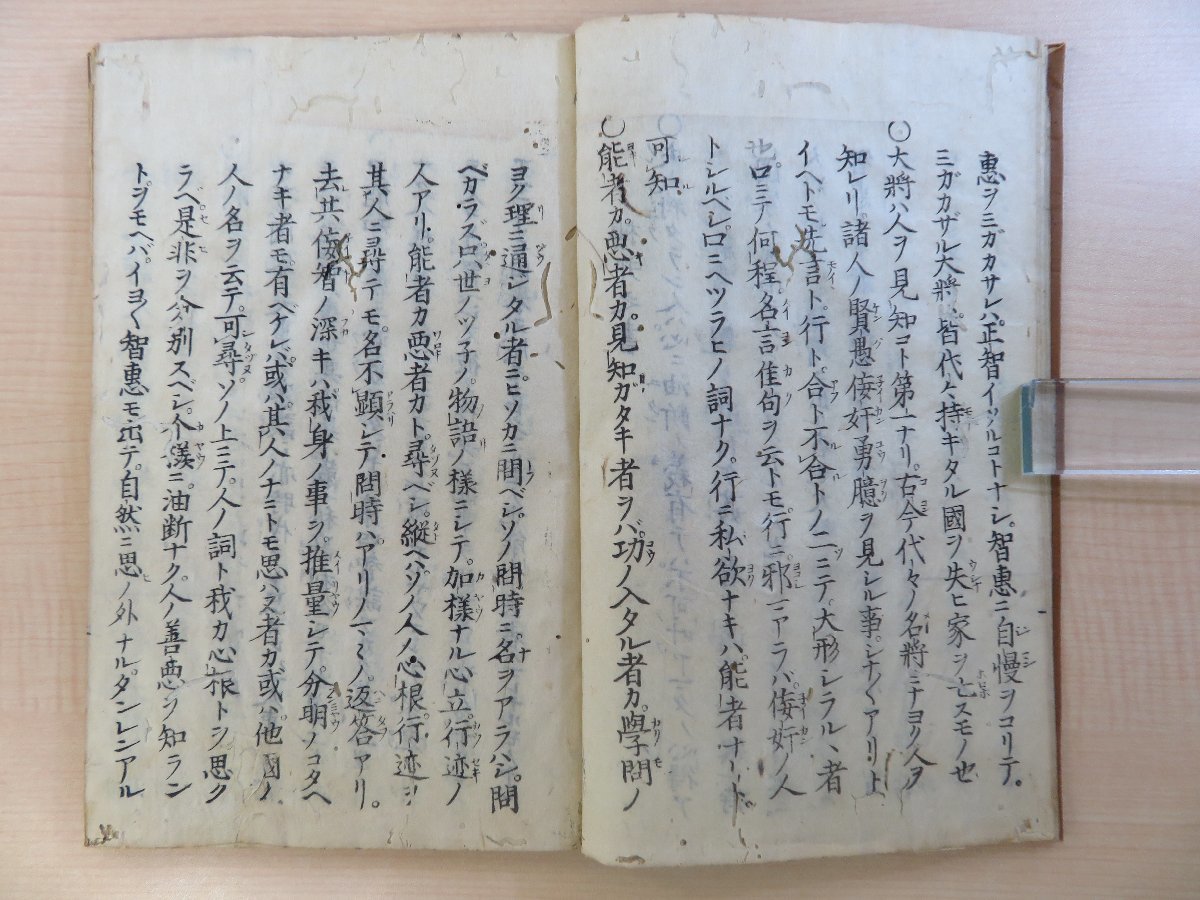 惠ヲミガカサレハ正智イツルコトナシ。智惠ニ自慢ヲコリテ。
ミガカザル大將。皆代々持キタル國ヲ失ヒ家ヲ亡スモノ也
〇大將ハ人ヲ見知コト第一ナリ。古今代々ノ名將ミナヨク人ヲ
知レリ。諸人ノ賢愚倭奸勇臆ヲ見シル事。シナ〱アリ。上
イヘドモ。先言ト。行ト。合ト不合トノ二ツニテ。大形シラル、者
口ニテ何程名言佳句ヲ云トモ。行ニ邪ニアラバ倭奸ノ人
トシルヘシ。口ニヘツラヒノ詞ナク。行ニ私欲ナキハ。能者ナート
可知
〇能者カ。悪者カ。見知ガタキ者ヲバ。功ノ入タル者カ。學問ノ
ヨク理ニ通シタル者ニヒソカニ問ベシ。ソノ問時ニ名ヲアラハシ。問
ベカラズ。只世ノツ子ノ物語ノ樣ニシテ。加樣ナル心立。行迹ノ
人アリ。能者カ悪者カト。尋ベシ。縱ヘハソノ人ノ心根。行迹ヲ
其人ニ尋テモ。名不顕シテ問時ハ。アリノマヽノ。返答アリ。
去共倭智ノ深キハ。我身ノ事ヲ。推量シテ。分明ノコタヘ
ナキ者モ。有ベケレバ。或ハ其人ノナニトモ思ハヌ者カ或ハ他國ノ
人ノ名ヲ云テ。可尋ソノ上ニテ。人ノ詞ト我カ心根トシ思ク
ラベ是非ヲ分別スベシ。个樣ニ油断ナク。人ノ善悪ヲ知ラン
トヲモヘバ。イヨ〱智惠モ出テ。自然ニ思ノ外ナル。タンレンアル